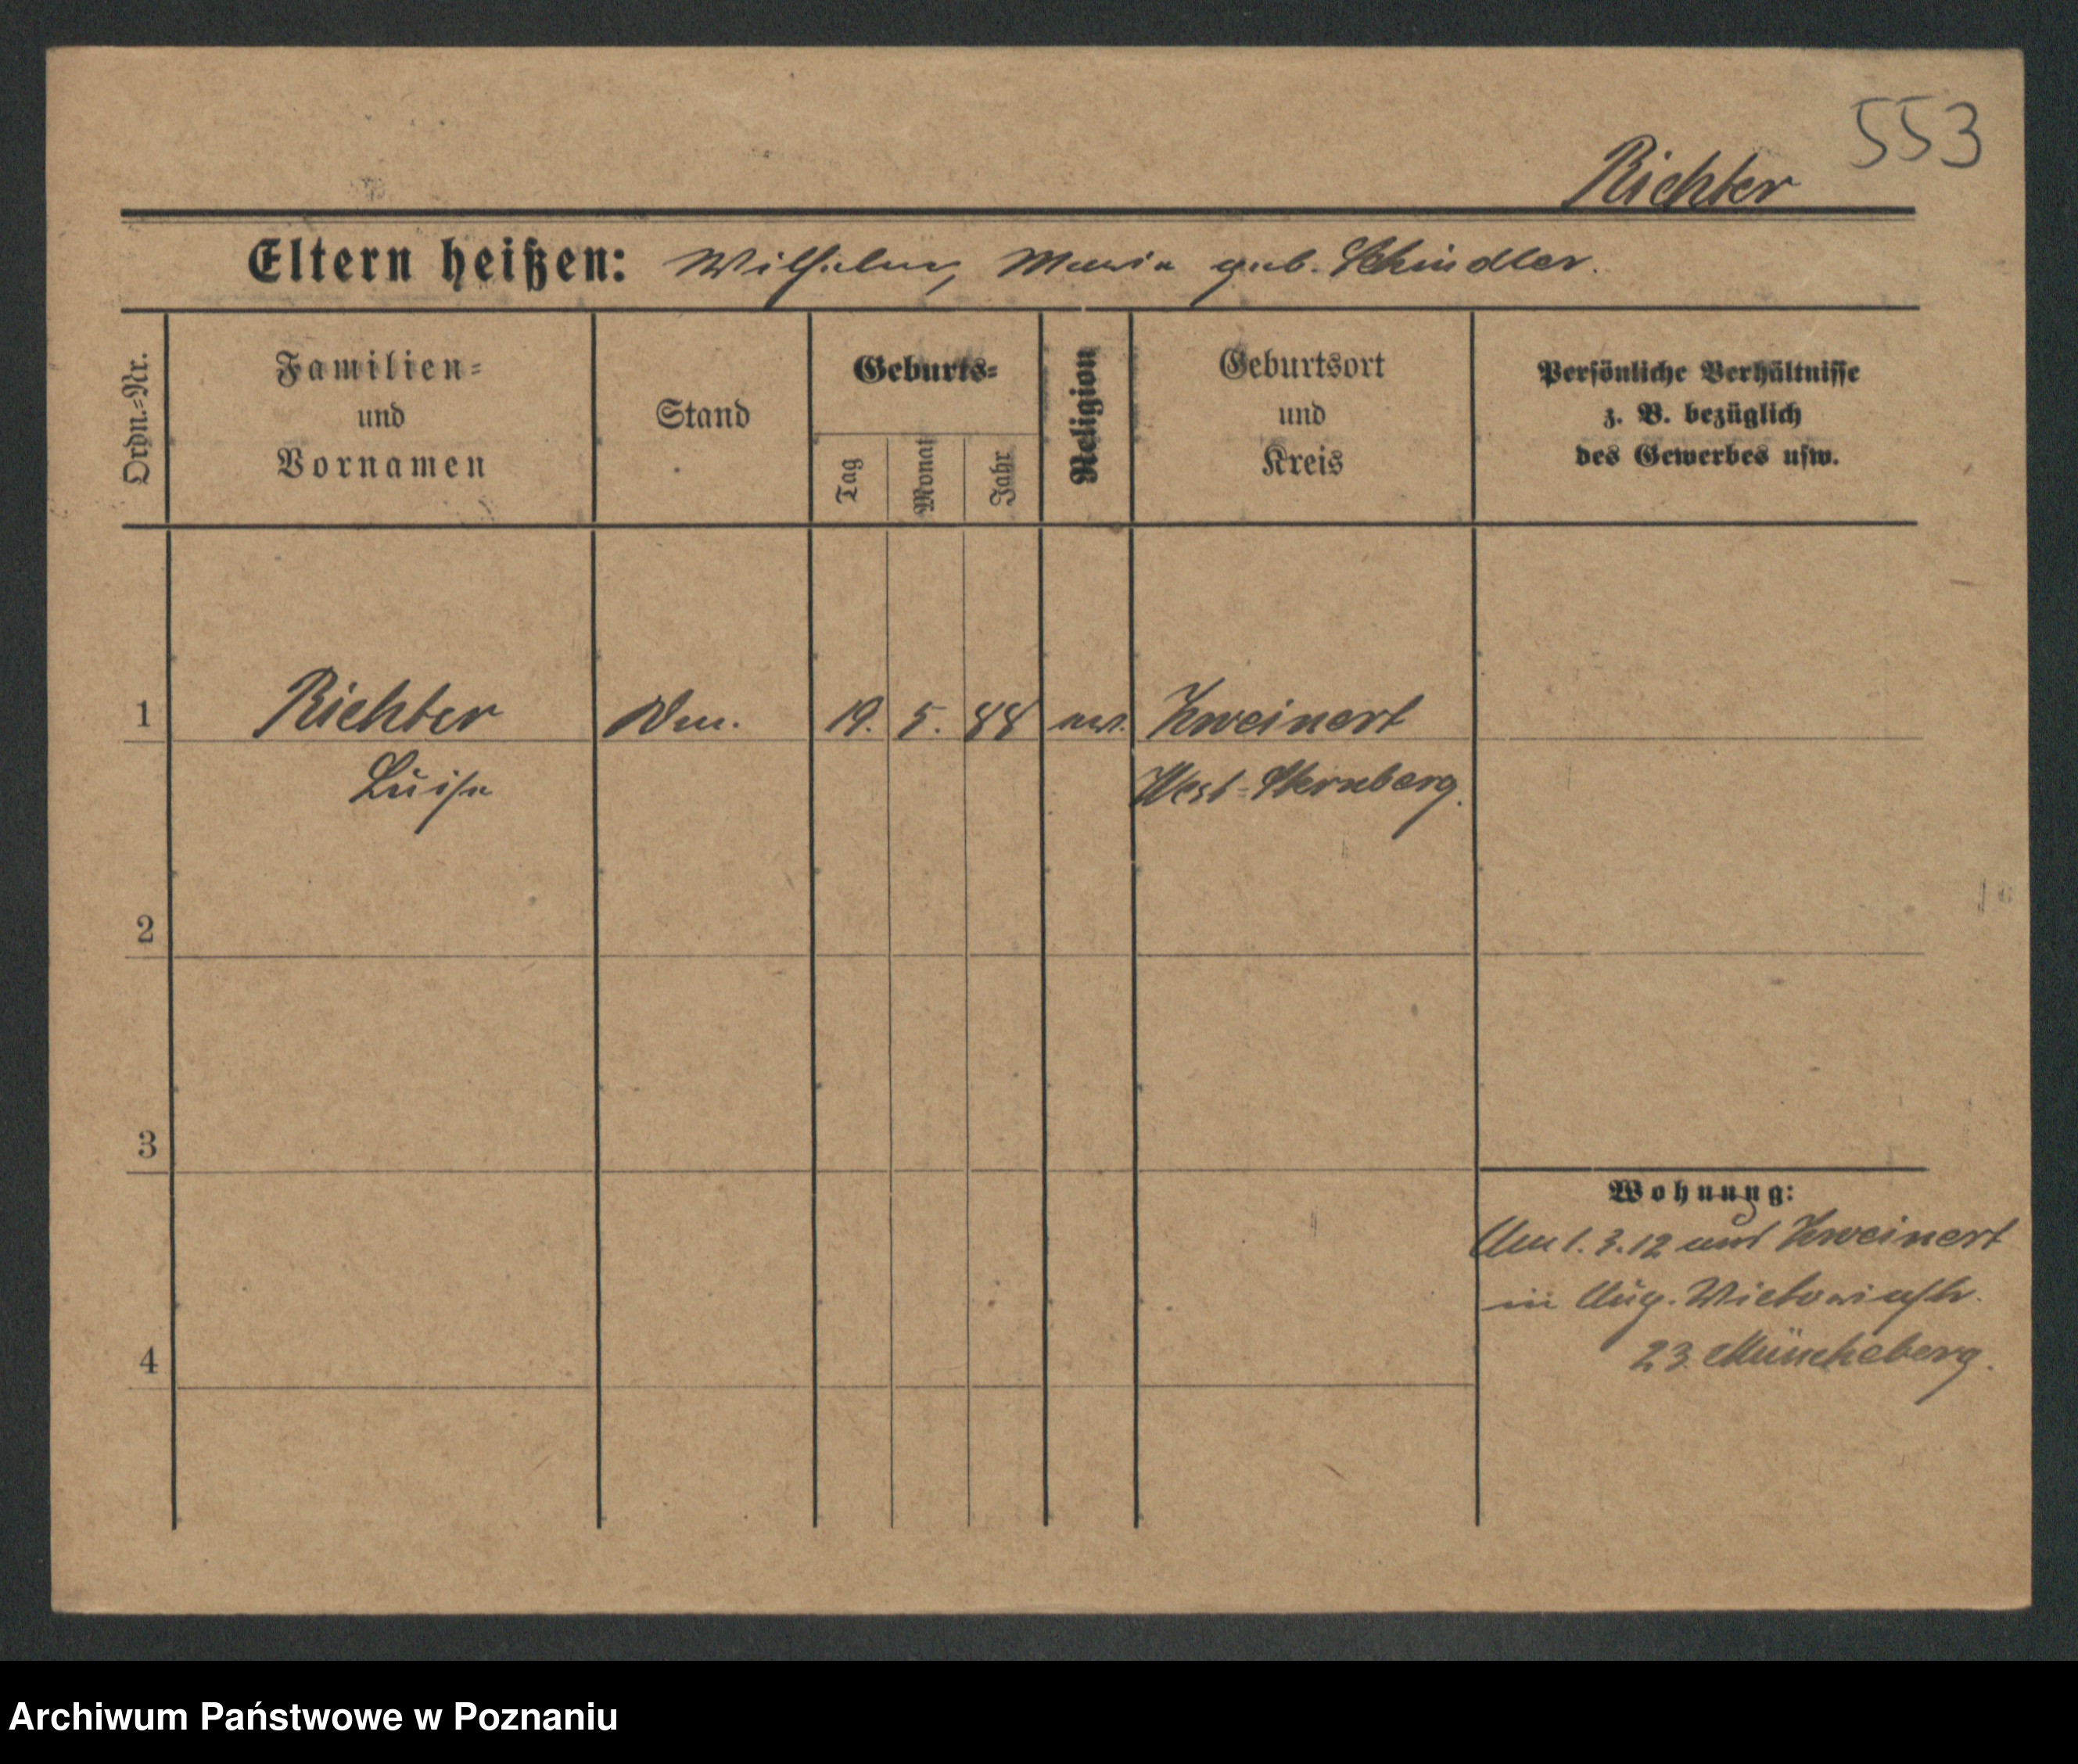 553
Richter
Eltern heißen: Wilhelm, Maria geb. Schindler.
Ordn.-Nr.
Familien-
und
Vornamen
Stand
Geburts-
Tag
Monat
Jahr
Religion
Geburtsort
und
Kreis
Persönliche Verhältnisse
z. B. bezüglich
des Gewerbes usw.
1 Richter 19. 5. 88 Kweinert
Luise West-Sternberg.
2
3
Wohnung:
Am 1.3.12 aus Kweinert
in Aug. Viktoriastr.
23. Müncheberg.
4
Archiwum Państwowe w Poznaniu